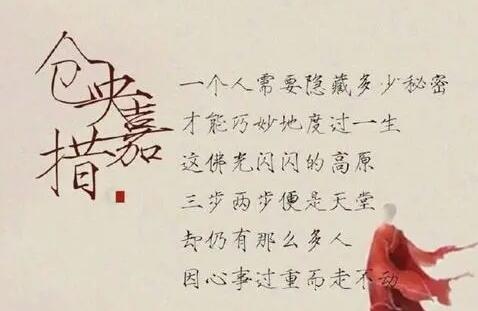 仓央嘉措
一个人需要隐藏多少秘密
才能巧妙地度过一生
这佛光闪闪的高原
三步两步便是天堂
却仍有那么多人
因心事过重而走不动